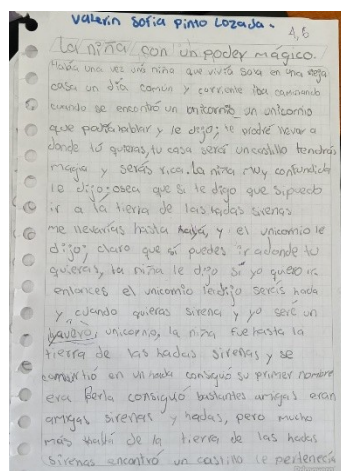 Valerin Sofía Pinto Lozada.
4,6
La niña con un poder mágico.
Había una vez una niña que vivía sola en una vieja
casa un día común y corriente iba caminando
cuando se encontró un unicornio un unicornio
que podía hablar y le dijo; te podré llevar a
donde tú quieras, tu casa será un castillo tendrás
magia y serás rica. La niña muy confundida
le dijo; osea que si le digo que si puedo
ir a la tierra de las hadas sirenas
me llevarías hasta haya, y el unicornio le
dijo; claro que si puedes ir adonde tu
quieras, la niña le dijo si yo quiero ir
entonces el unicornio le dijo serás hada
y cuando quieras sirena y yo seré un
unicornio, la niña fue hasta la
tierra de las hadas sirenas y se
convirtió en un hada consiguó su primer nombre
era Perla consiguó bastantes amigas eran
amigas sirenas y hadas, pero mucho
más de la tierra de las hadas
sirenas encontró un castillo le pertenecía